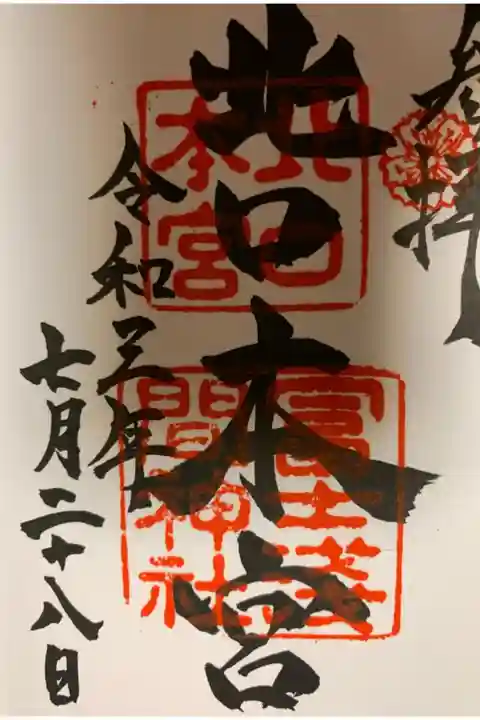 参拝
北口本宮
令和三年
七月二十八日
北口
本宮
冨士浅
間神社